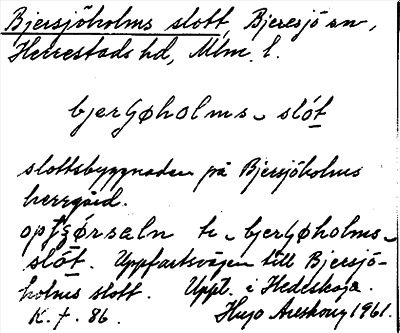 Bjersjöholms slott, Bjeresjö sn,
Herrestads hd, Mlm. l.
bjerʃøholms- slót
slottsbyggnaden på Bjersjöholms
herrgård.
te bjerʃøholms-
slót. Uppfartsvägen till Bjersjö-
holms slott. Uppt. i Hedeskoga.
K. f. 86. Hugo Areskoug 1961.